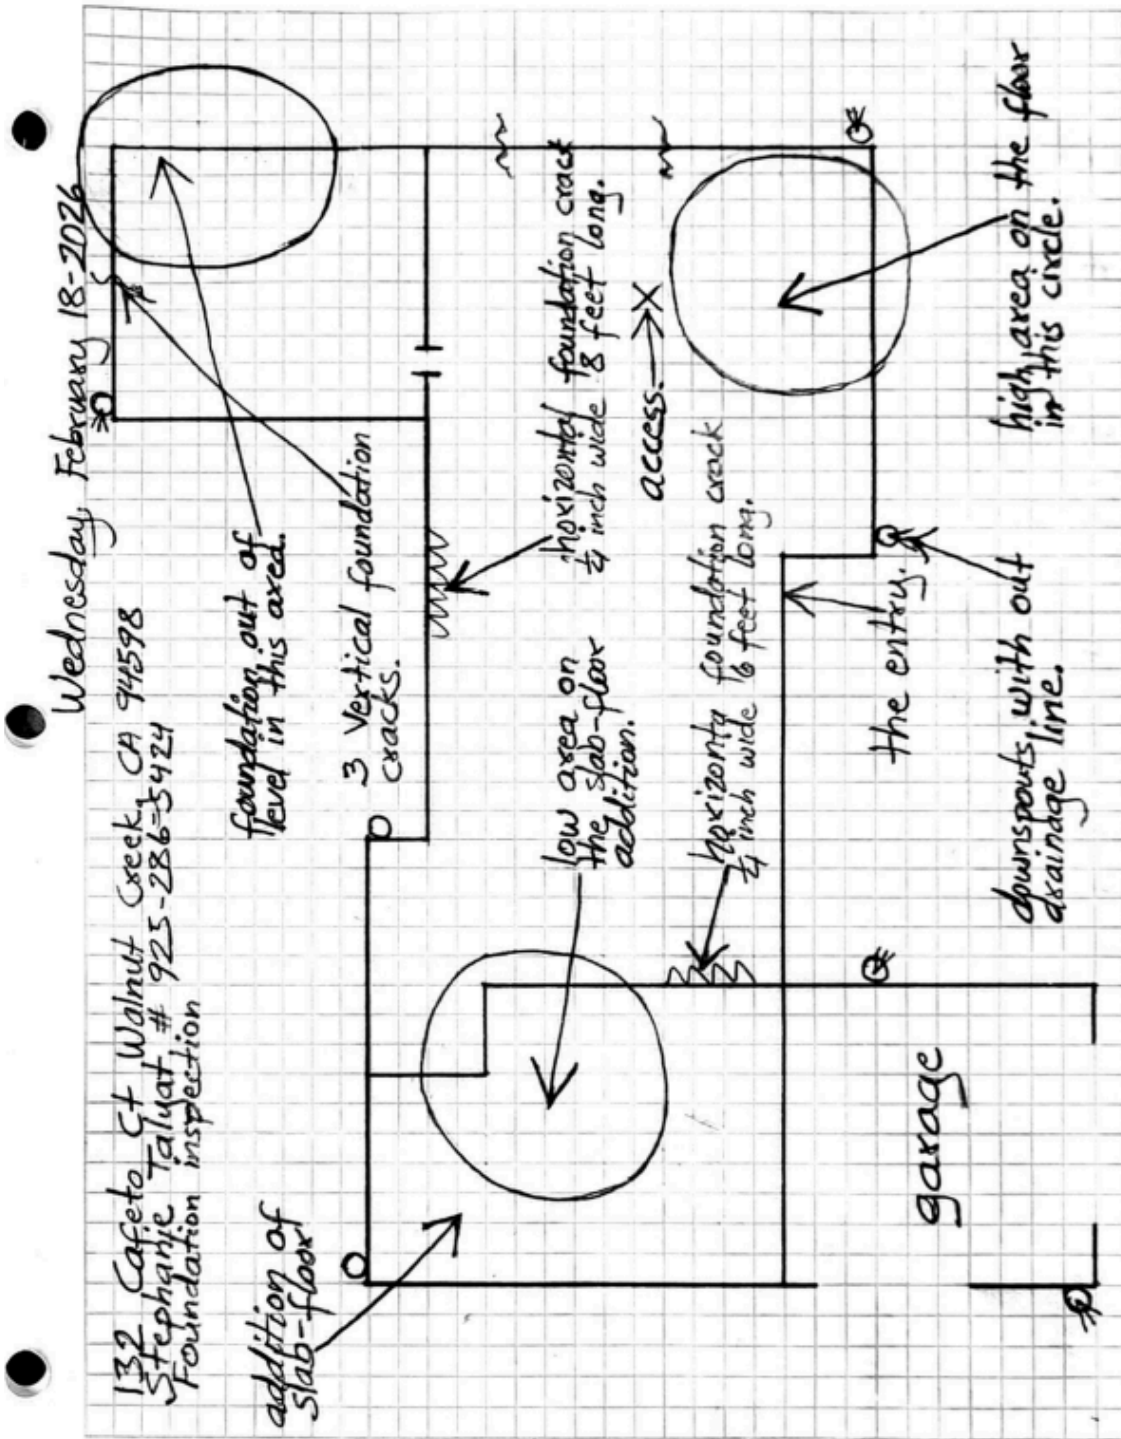 Wednesday, February 18-2026
132 Cafeto Ct Walnut Creek, CA 94598
Stephanie Talyat # 925-286-5424
Foundation inspection
addition of
slab-floor
foundation out of
level in this area.
3 vertical foundation
cracks.
low area on
the slab-floor
addition.
horizontal foundation crack
¼ inch wide 8 feet long.
access. X
horizonta foundation crack
¼ inch wide 6 feet long.
the entry.
garage
downspouts with out
drainage line.
high area on the floor
in this circle.